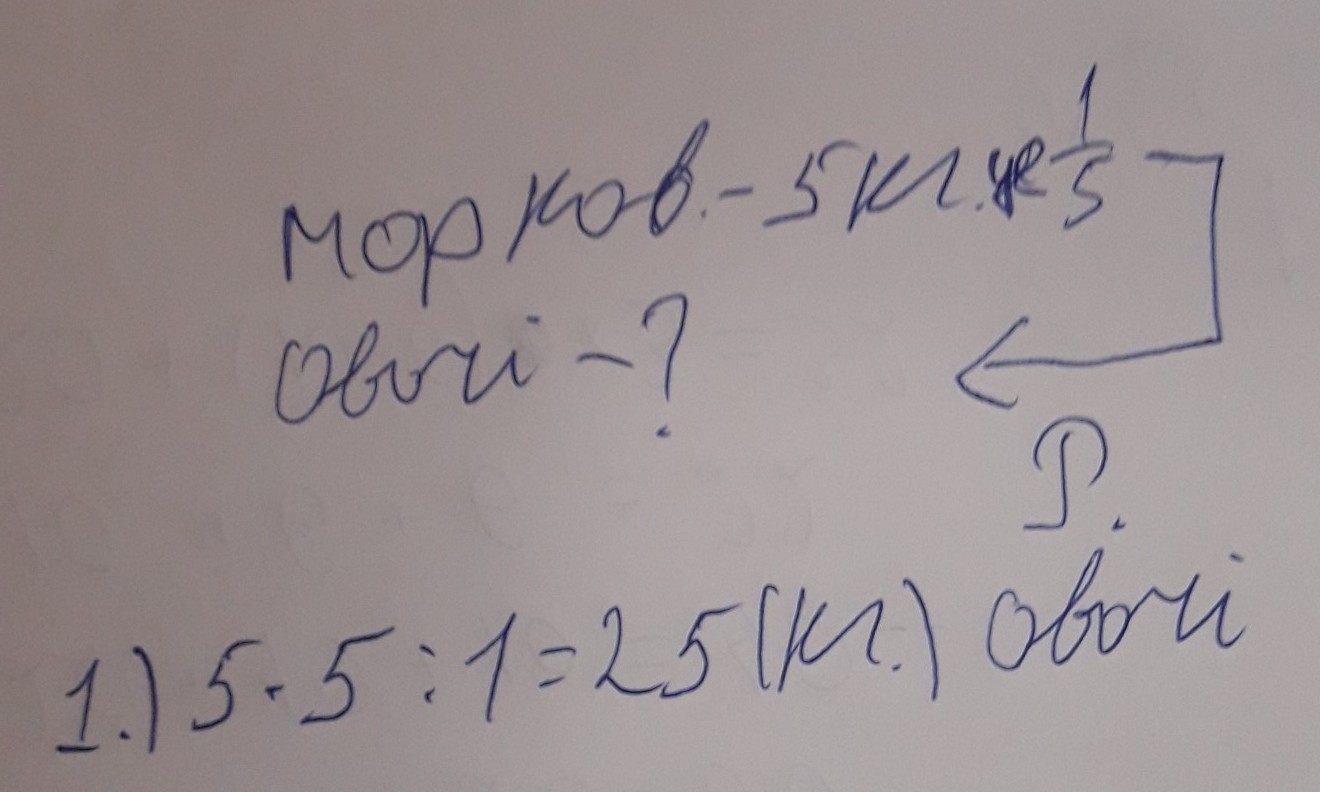 морков. - 5 кг. це 1/5
Овочі - ?
Р.
1.) 5 · 5 : 1 = 25 (кг.) овочі